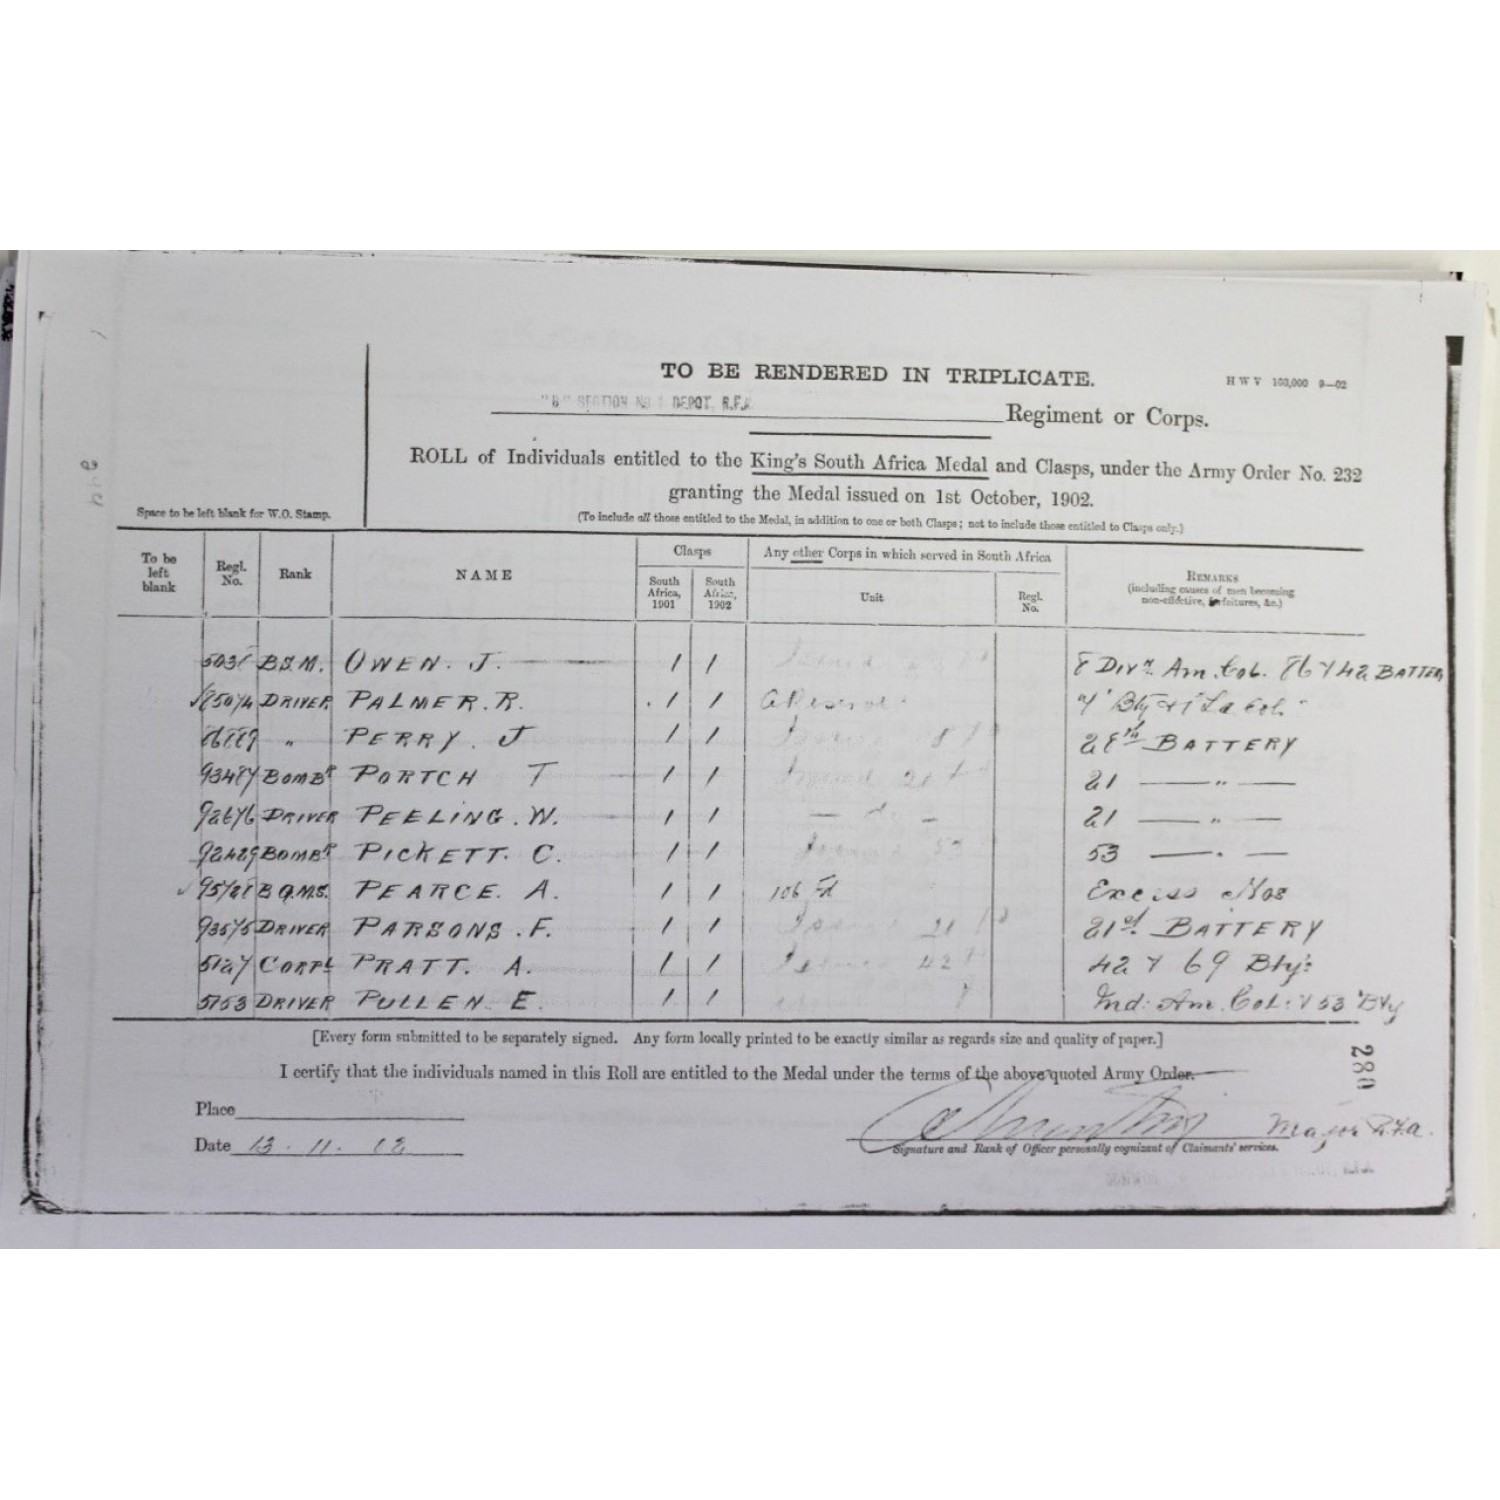 TO BE RENDERED IN TRIPLICATE.
H W V 100,000 9—02
"B" SECTION No 1 DEPOT, R.F.A. Regiment or Corps.
ROLL of Individuals entitled to the King's South Africa Medal and Clasps, under the Army Order No. 232
granting the Medal issued on 1st October, 1902.
Space to be left blank for W.O. Stamp.
(To include all those entitled to the Medal, in addition to one or both Clasps; not to include those entitled to Clasps only.)
To be left blank Regl. No. Rank NAME Clasps South Africa, 1901 South Africa, 1902 Any other Corps in which served in South Africa Unit Regl. No. REMARKS (including causes of men becoming non-effective, forfeitures, &c.)
B.S.M. OWEN. J. 1 1 8 Divn. Am. Col. 86 & 42 BATTER
DRIVER PALMER. R. 1 1 Bty
" PERRY. J 1 1 28th BATTERY
93487 BOMBr PORTCH T 1 1 21 — " —
92676 DRIVER PEELING. W. 1 1 — do — 21 — " —
92429 BOMBr PICKETT. C. 1 1 53 — " —
B.Q.M.S. PEARCE. A. 1 1 106 Fd Excess Nos
93575 DRIVER PARSONS. F. 1 1 21st. BATTERY
5127 CORPL PRATT. A. 1 1 42 & 69 Bty's
5753 DRIVER PULLEN. E. 1 1 Ind: Am. Col: & 53 Bty
[Every form submitted to be separately signed. Any form locally printed to be exactly similar as regards size and quality of paper.]
I certify that the individuals named in this Roll are entitled to the Medal under the terms of the above quoted Army Order.
280
Place
Major R.F.A.
Date 13. 11. 02
Signature and Rank of Officer personally cognizant of Claimants' services.